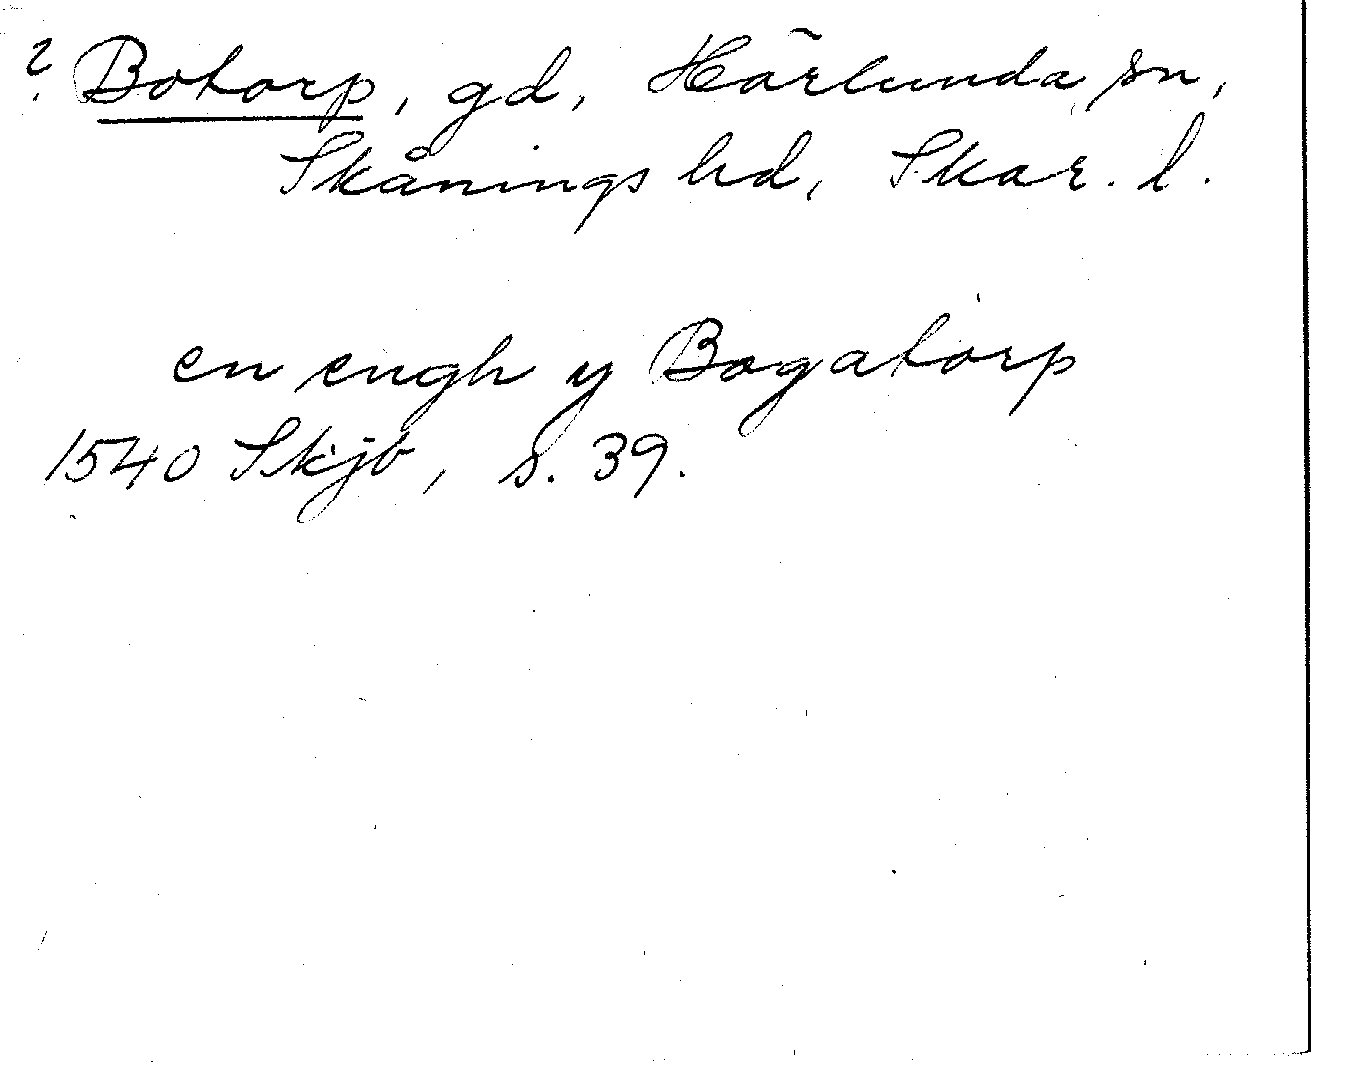 ? Botorp, gd, Härlunda sn,
Skånings hd, Skar. l.
en engh y Bogatorp
1540 Skjb, s. 39.